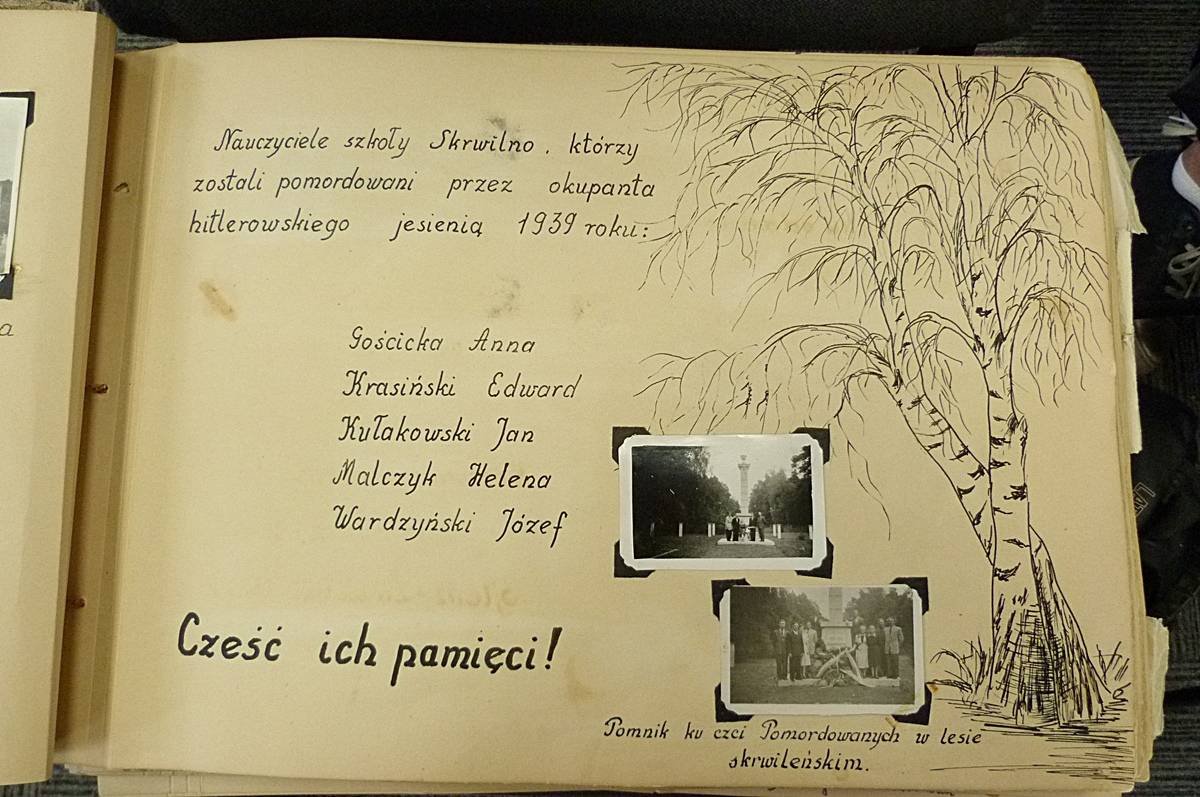 Nauczyciele szkoły Skrwilno, którzy
zostali pomordowani przez okupanta
hitlerowskiego jesienią 1939 roku:
Gościcka Anna
Krasiński Edward
Kułakowski Jan
Malczyk Helena
Wardzyński Józef
Cześć ich pamięci!
Pomnik ku czci Pomordowanych w lesie
skrwileńskim.
a